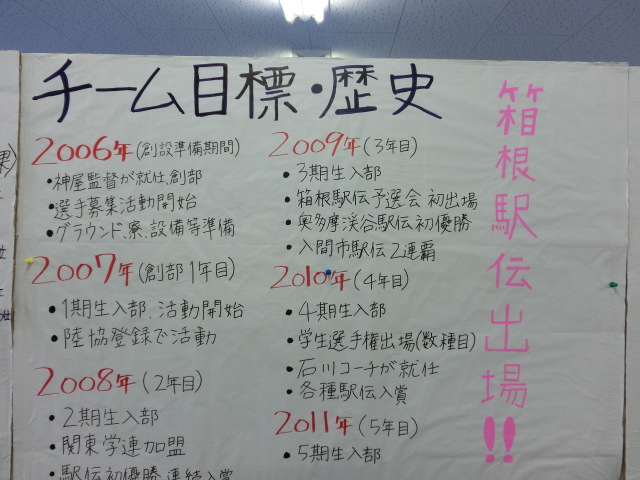 チーム目標・歴史
2006年(創設準備期間)
・神屋監督が就任、創部
・選手募集活動開始
・グラウンド、寮、設備等準備
2007年(創部1年目)
・1期生入部、活動開始
・陸協登録で活動
2008年(2年目)
・2期生入部
・関東学連加盟
・駅伝初優勝、連続入賞
2009年(3年目)
・3期生入部
・箱根駅伝予選会 初出場
・奥多摩渓谷駅伝 初優勝
・入間市駅伝 2連覇
2010年(4年目)
・4期生入部
・学生選手権出場(数種目)
・石川コーチが就任
・各種駅伝入賞
2011年(5年目)
・5期生入部
箱根駅伝出場!!